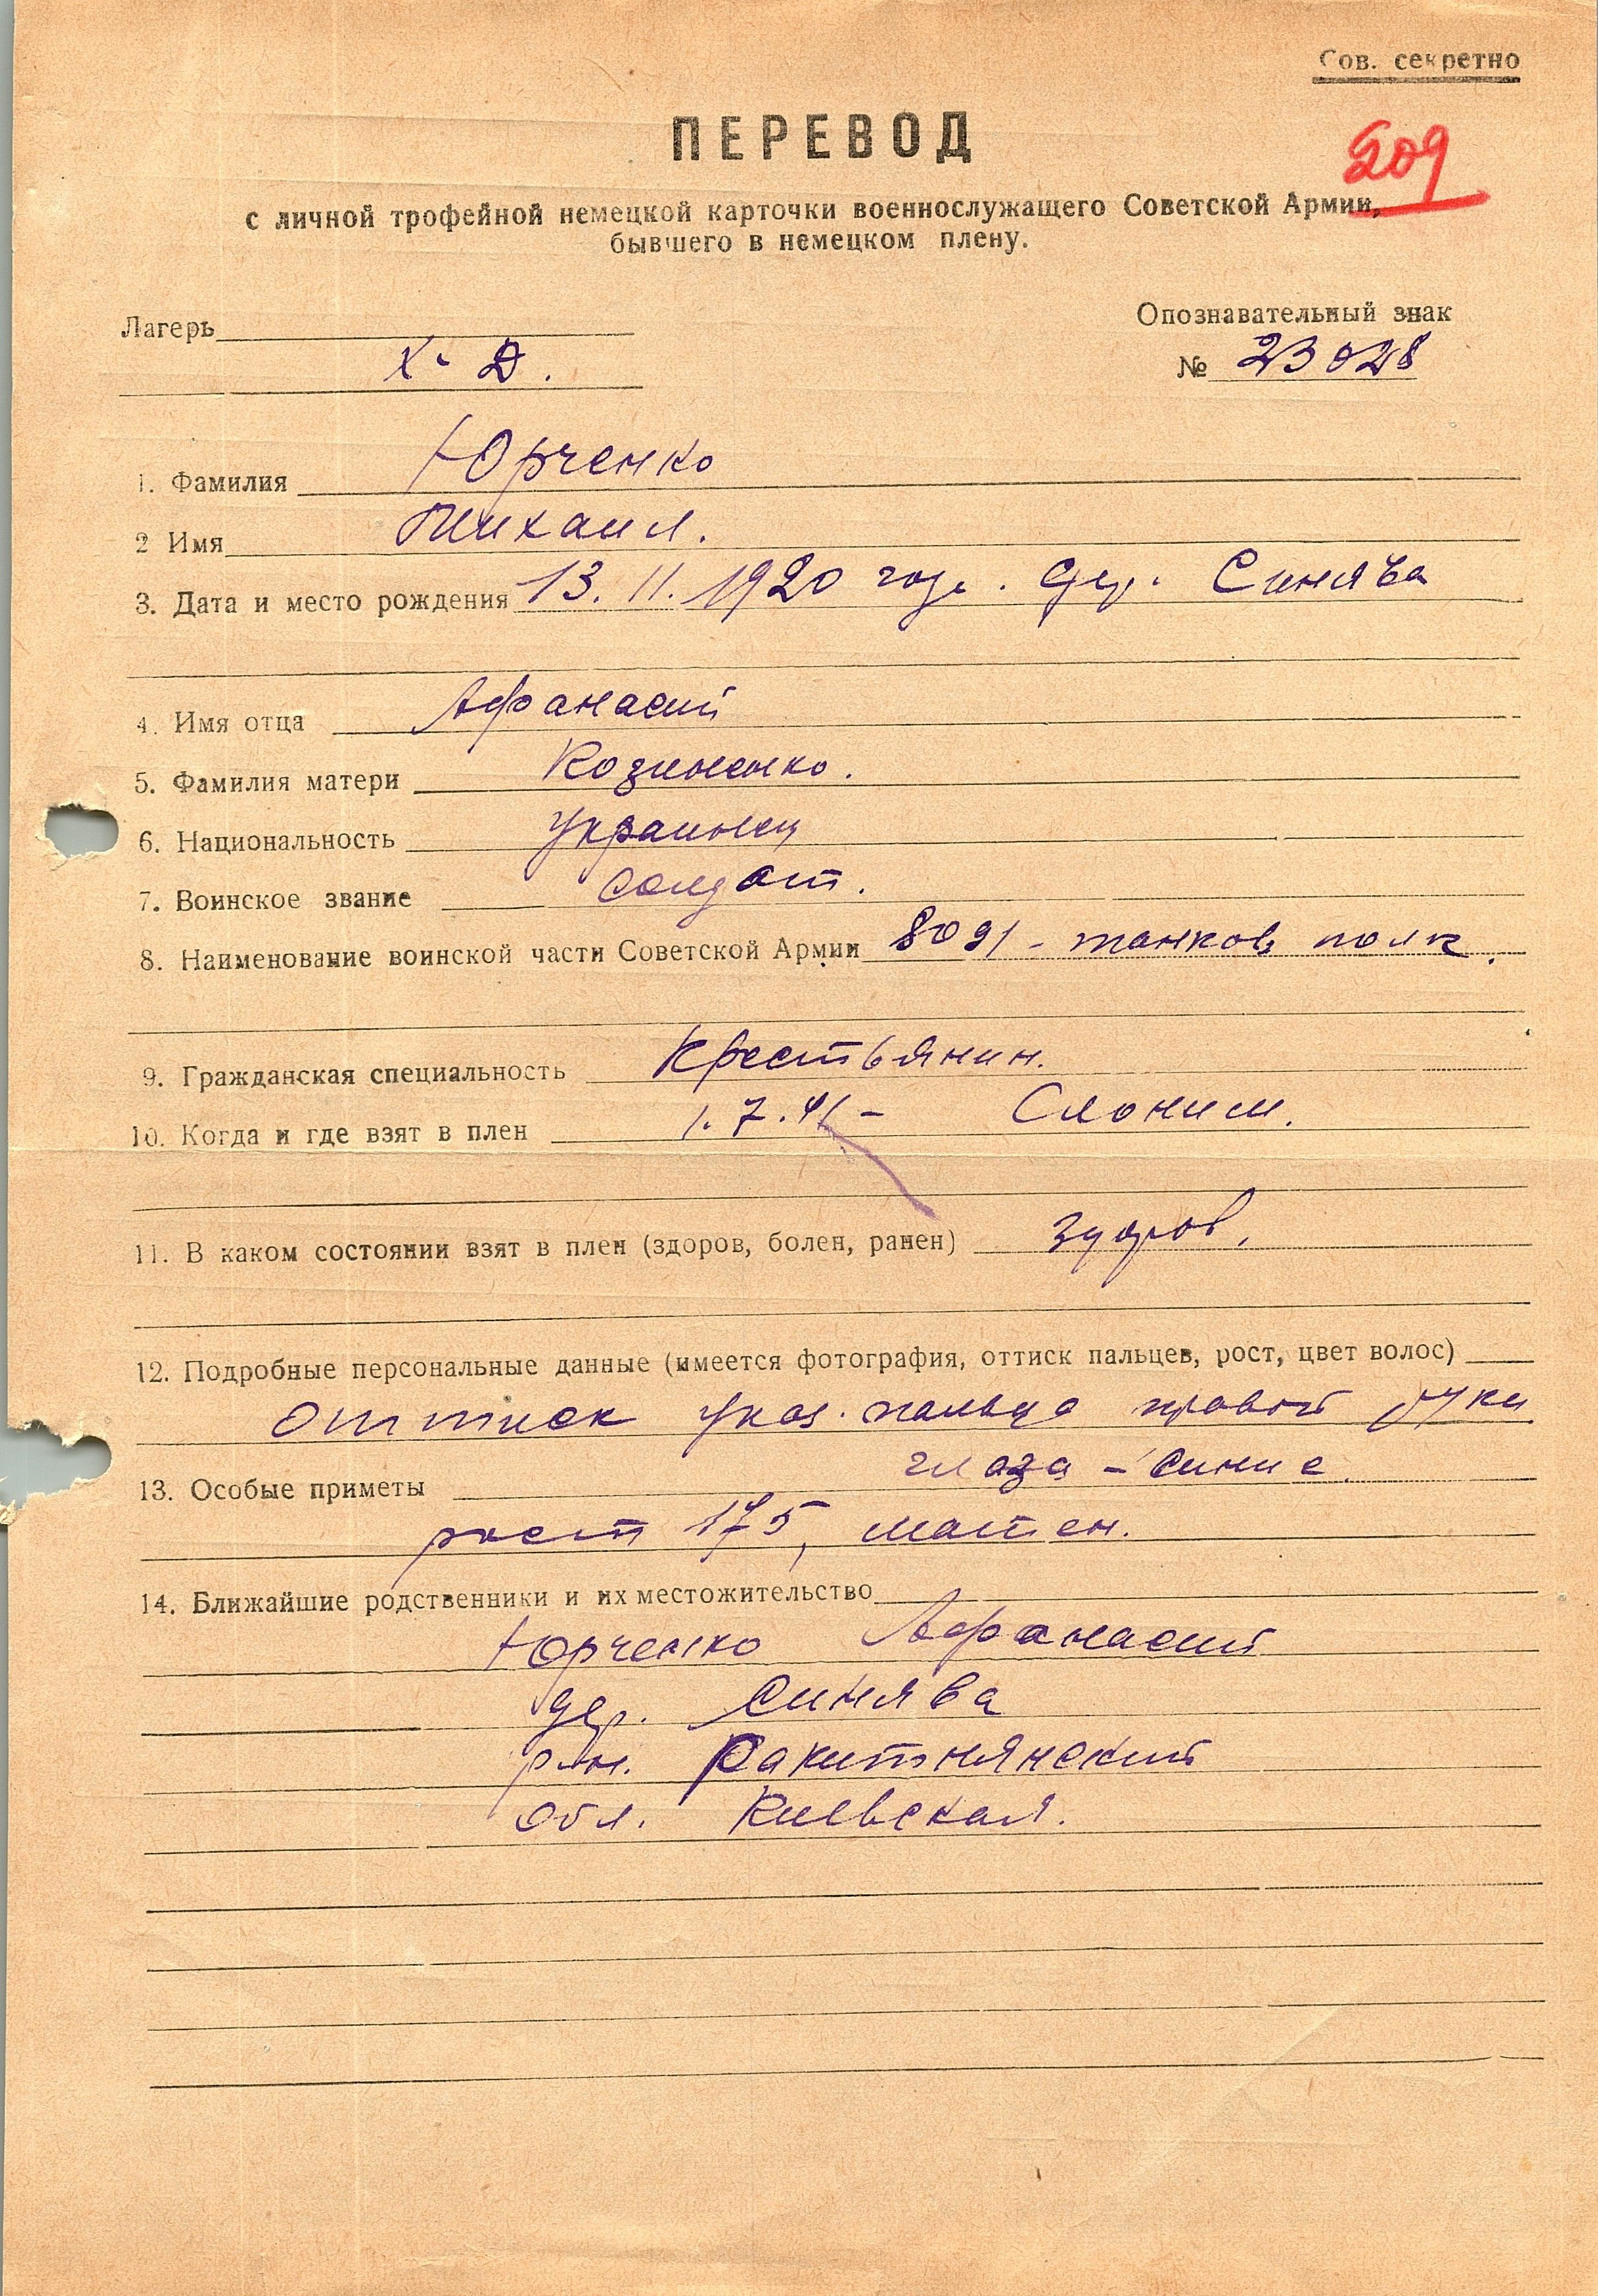 Сов. секретно
ПЕРЕВОД
509
с личной трофейной немецкой карточки военнослужащего Советской Армии,
бывшего в немецком плену.
Лагерь
Опознавательный знак
X-Д.
№ 23028
1. Фамилия Юрченко
2 Имя Михаил.
3. Дата и место рождения 13.11.1920 года. дер. Синява
4. Имя отца Афанасий
5. Фамилия матери Козиненко.
6. Национальность Украинец
7. Воинское звание солдат.
8. Наименование воинской части Советской Армии 8091 - танков полк.
9. Гражданская специальность Крестьянин.
10. Когда и где взят в плен 1.7.41 - Слоним.
11. В каком состоянии взят в плен (здоров, болен, ранен) здоров.
12. Подробные персональные данные (имеется фотография, оттиск пальцев, рост, цвет волос)
оттиск указ. пальца правой руки
глаза - синие.
13. Особые приметы
рост 175,
14. Ближайшие родственники и их местожительство
Юрченко Афанасий
дер. Синява
р-н. Ракитнянский
обл. Киевская.